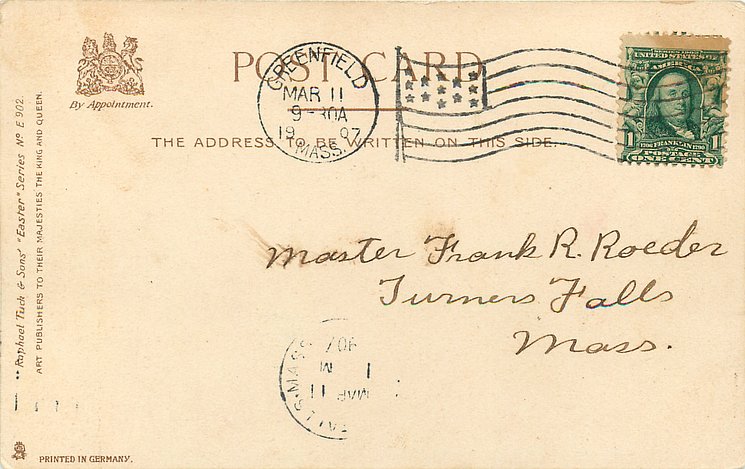 POST CARD
By Appointment.
GREENFIELD
MAR 11
9-30A
1907
MASS.
UNITED STATES OF
AMERICA
FRANKLIN
1 1
POSTAGE
ONE CENT
THE ADDRESS TO BE WRITTEN ON THIS SIDE.
"Raphael Tuck & Sons' "Easter" Series Nº E 902.
ART PUBLISHERS TO THEIR MAJESTIES THE KING AND QUEEN.
Master Frank R. Roeder
Turners Falls
Mass.
MASS
MAR 11
1
M
907
PRINTED IN GERMANY.